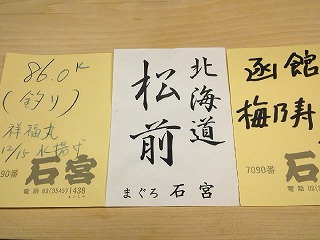 86.0K
(釣り)
祥福丸
12/15 水揚げ
石宮
090番
電話 03(3545)1438
北海道
松前
まぐろ 石宮
函館
梅乃寿
7090番
石
電話 03(3